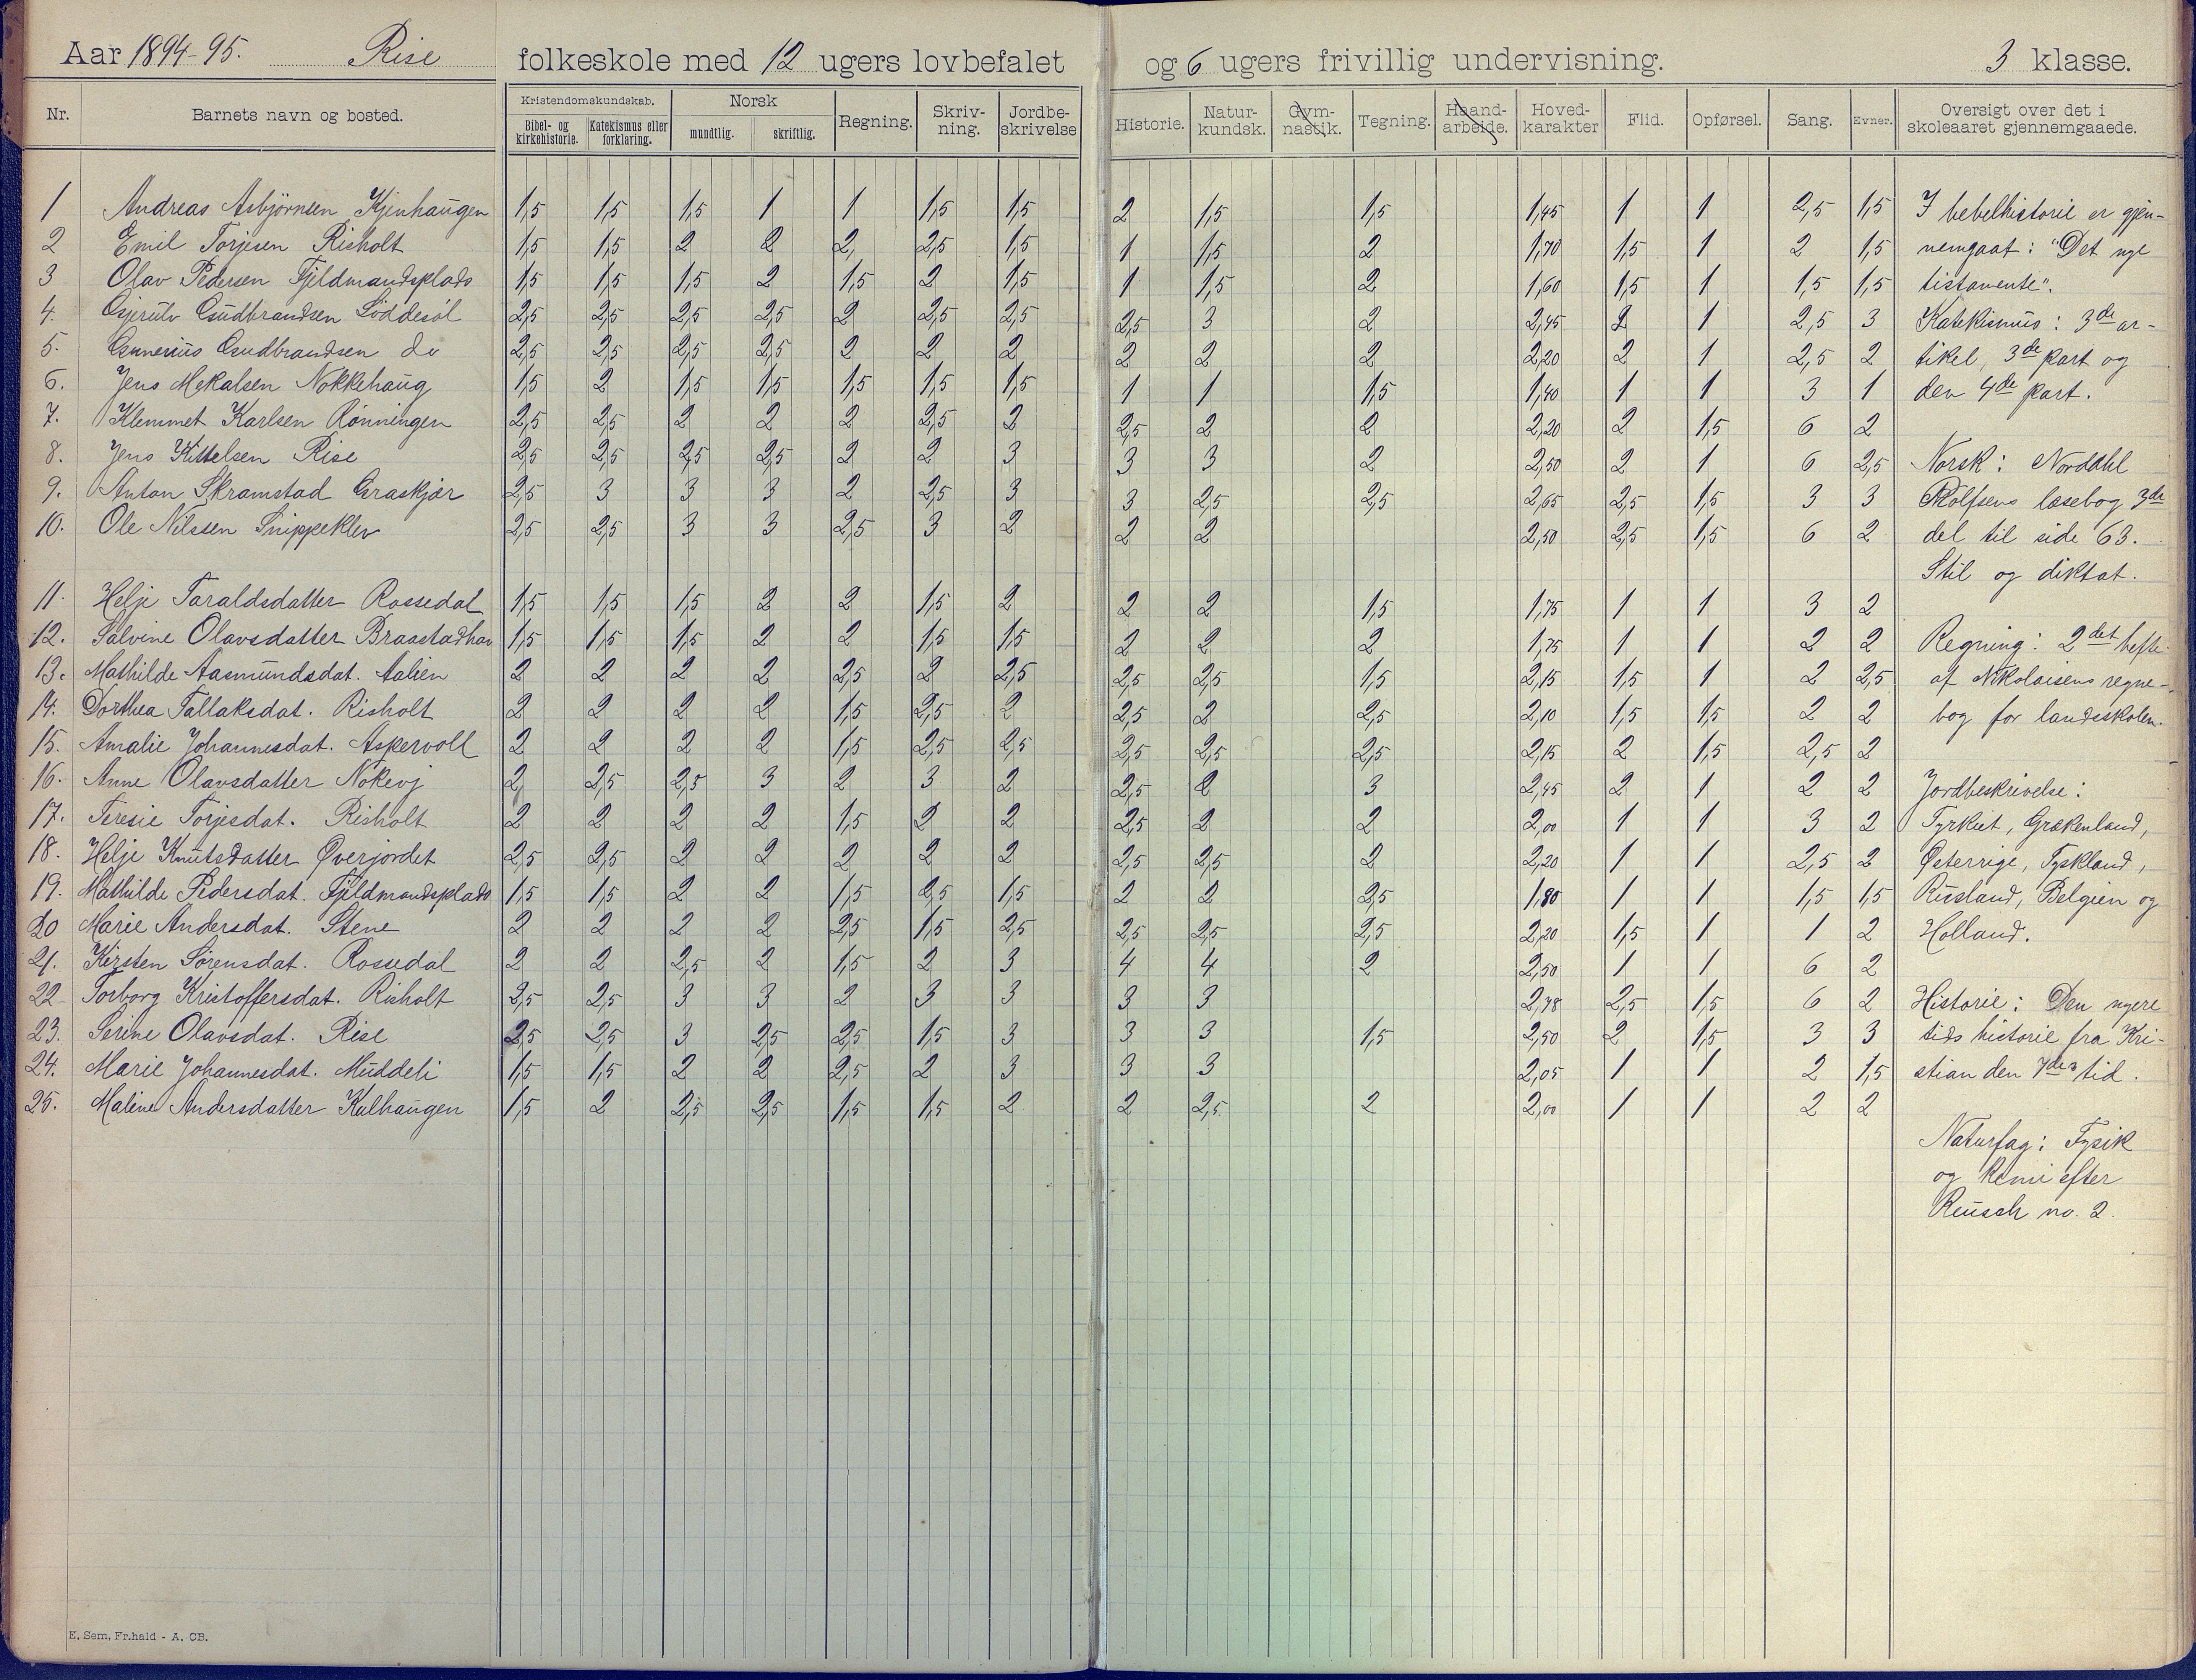 Aar 1894-95. Rise folkeskole med 12 ugers lovbefalet og 6 ugers frivillig undervisning. 3 klasse.
Nr. Barnets navn og bosted. Kristendomskundskab. Norsk Regning. Skriv- ning. Jordbe- skrivelse Historie. Natur- kundsk. Gym- nastik. Tegning. Haand- arbeide. Hoved- karakter Flid. Opførsel. Sang. Evner. Oversigt over det i skoleaaret gjennemgaaede.
Bibel- og kirkehistorie. Katekismus eller forklaring. mundtlig. skriftlig.
1 Andreas Asbjørnsen Kjenhaugen 1,5 1,5 1,5 1 1 1,5 1,5 2 1,5 1,5 1,45 1 1 2,5 1,5 I bebelhistorie er gjen-
2 Emil Torjesen Risholt 1,5 1,5 2 2 2, 2,5 1,5 1 1,5 2 1,70 1,5 1 2 1,5 nemgaat: "Det nye
3 Olav Pedersen Fjeldmandsplads 1,5 1,5 1,5 2 1,5 2 1,5 1 1,5 2 1,60 1,5 1 1,5 1,5 tistamente".
4. Gjerulv Gudbrandsen Løddesøl 2,5 2,5 2,5 2,5 2 2,5 2,5 2,5 3 2 2,45 2 1 2,5 3 Katekismus: 3de ar-
5. Gunerius Gudbrandsen do 2,5 2,5 2,5 2,5 2 2 2 2 2 2 2,20 2 1 2,5 2 tikel, 3de part og
6. Jens Mekalsen Nokkehaug 1,5 2 1,5 1,5 1,5 1,5 1,5 1 1 1,5 1,40 1 1 3 1 den 4de part.
7. Klemmet Karlsen Rønningen 2,5 2,5 2 2 2 2,5 2 2,5 2 2 2,20 2 1,5 6 2
8. Jens Kittelsen Rise 2,5 2,5 2,5 2,5 2 2 3 3 3 2 2,50 2 1 6 2,5 Norsk: Nordahl
9. Anton Skramstad Graskjær 2,5 3 3 3 2 2,5 3 3 2,5 2,5 2,65 2,5 1,5 3 3 Rolfsens læsebog 3de
10. Ole Nilssen Snippeklev 2,5 2,5 3 3 2,5 3 2 2 2 2,50 2,5 1,5 6 2 del til side 63.
Stil og diktat.
11. Helje Taraldsdatter Rossedal 1,5 1,5 1,5 2 2 1,5 2 2 2 1,5 1,75 1 1 3 2
12. Salvine Olavsdatter Braastadhau 1,5 1,5 1,5 2 2 1,5 1,5 2 2 2 1,75 1 1 2 2 Regning: 2det hefte
13. Mathilde Aasmundsdat. Aalien 2 2 2 2 2,5 2 2,5 2,5 2,5 1,5 2,15 1,5 1 2 2,5 af Nikolaisens regne-
14. Dorthea Tallaksdat. Risholt 2 2 2 2 1,5 2,5 2 2,5 2 2,5 2,10 1,5 1,5 2 2 bog for landsskolen.
15. Amalie Johannesdat. Askervoll 2 2 2 2 1,5 2,5 2,5 2,5 2,5 2,5 2,15 2 1,5 2,5 2
16. Anne Olavsdatter Nokevj 2, 2,5 2,5 3 2 3 2 2,5 2 3 2,45 2 1 2 2 Jordbeskrivelse:
17. Teresie Torjesdat. Risholt 2 2 2 2 1,5 2 2 2,5 2 2 2,00 1 1 3 2 Tyrkiet, Grækenland,
18. Helje Knutsdatter Øverjordet 2,5 2,5 2 2 2 2 2 2,5 2,5 2 2,20 1 1 2,5 2 Østerrige, Tyskland,
19. Mathilde Pedersdat. Fjeldmandsplads 1,5 1,5 2 2 1,5 2,5 1,5 2 2 2,5 1,80 1 1 1,5 1,5 Rusland, Belgien og
20 Marie Andersdat. Stene 2 2 2 2 2,5 1,5 2,5 2,5 2,5 2,5 2,20 1,5 1 1 2 Holland.
21. Kirsten Sørensdat. Rossedal 2 2 2,5 2 1,5 2 3 4 4 2 2,50 1 1 6 2
22 Torborg Kristoffersdat. Risholt 2,5 2,5 3 3 2 3 3 3 3 2,78 2,5 1,5 6 2 Historie: Den nyere
23. Serine Olavsdat. Rise 2,5 2,5 3 2,5 2,5 1,5 3 3 3 1,5 2,50 2 1,5 3 3 tids historie fra Kri-
24. Marie Johannesdat. Muddeli 1,5 1,5 2 2 2,5 2 3 3 3 2,05 1 1 2 1,5 stian den 7des tid.
25. Maline Andersdatter Kalhaugen 1,5 2 2,5 2,5 1,5 1,5 2 2 2,5 2 2,00 1 1 2 2
Naturfag: Fysik
og kemi efter
Reusch no. 2.
E. Sem, Fr.hald - A. CB.